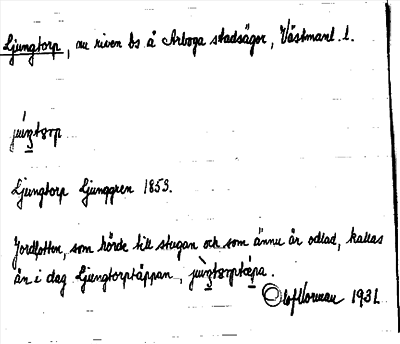 Ljungtorp, nu riven bs å Arboga stadsägor, Västmanl. l.
Ljungtorp Ljunggren 1853.
Jordlotten, som hörde till stugan och som ännu är odlad, kallas
än i dag Ljungtorptäppan,
1931